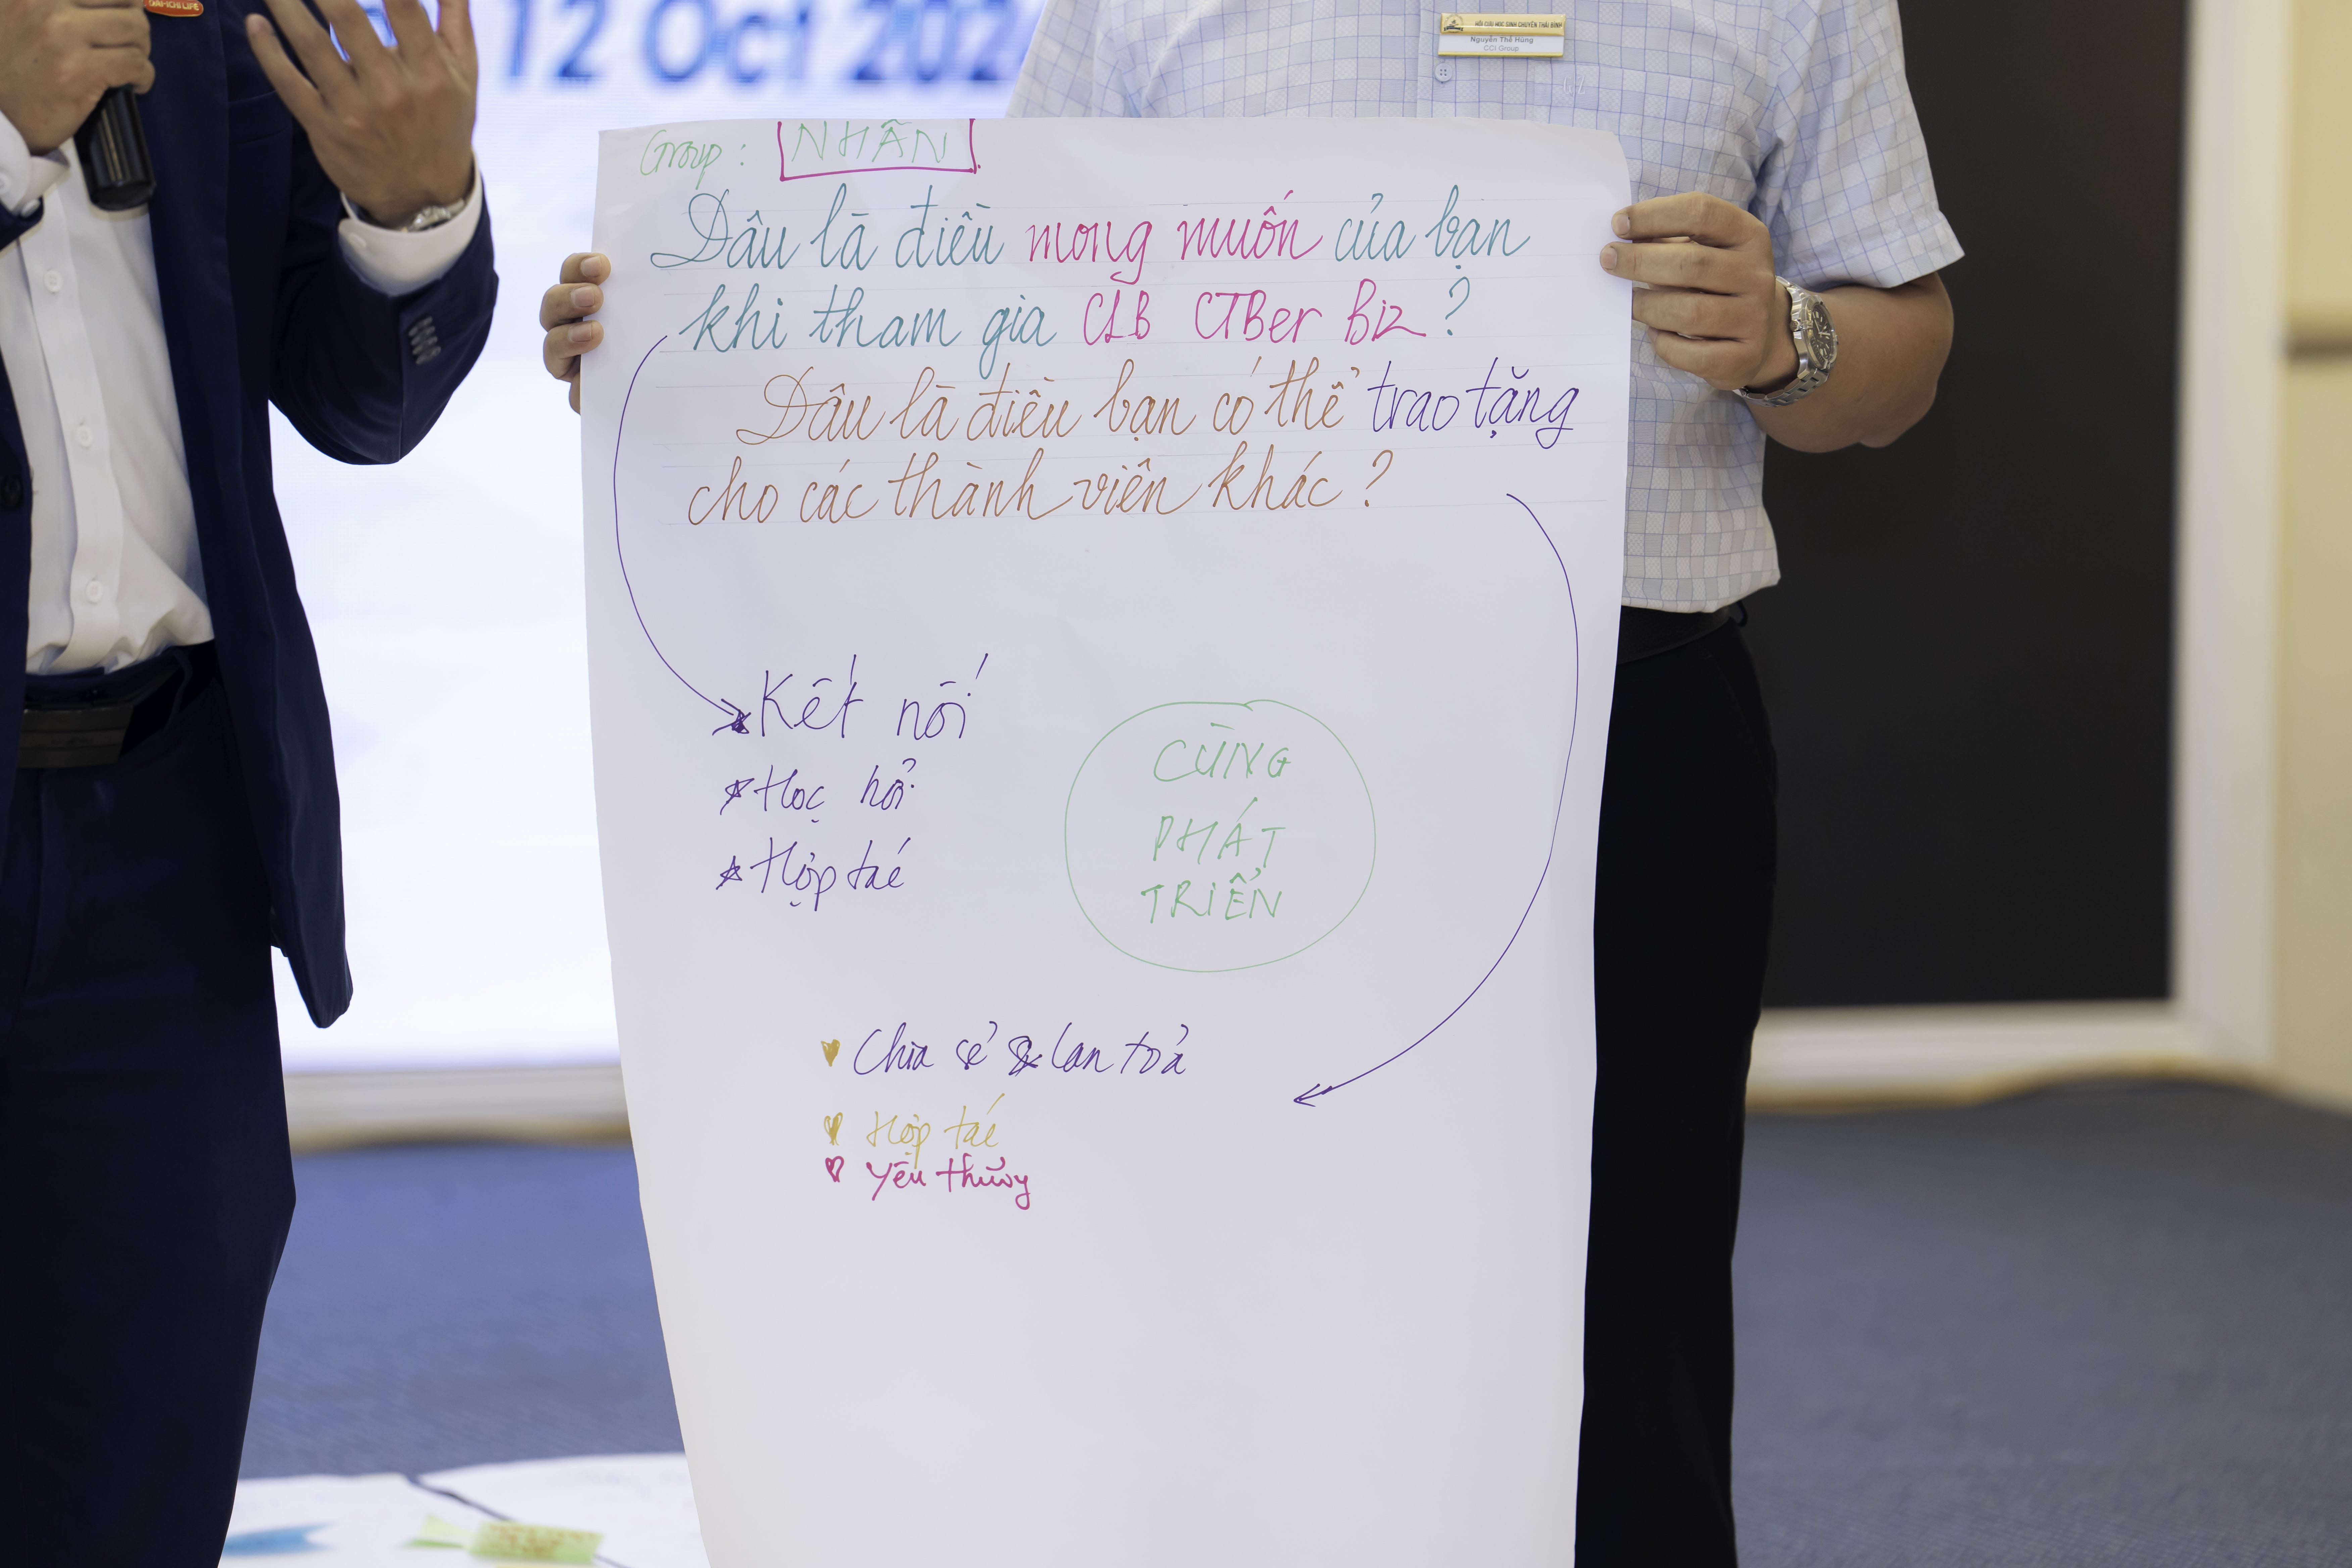 DAI-ICHI LIFE
12 Oct 202
HỘI CỰU HỌC SINH CHUYÊN THÁI BÌNH
Nguyễn Thế Hùng
CCI Group
Group : NHÂN
Đâu là điều mong muốn của bạn
khi tham gia CLB CTBer Biz ?
Đâu là điều bạn có thể trao tặng
cho các thành viên khác ?
Kết nối
Học hỏi
Hợp tác
CÙNG
PHÁT
TRIỂN
Chia sẻ & lan toả
Hợp tác
Yêu thương